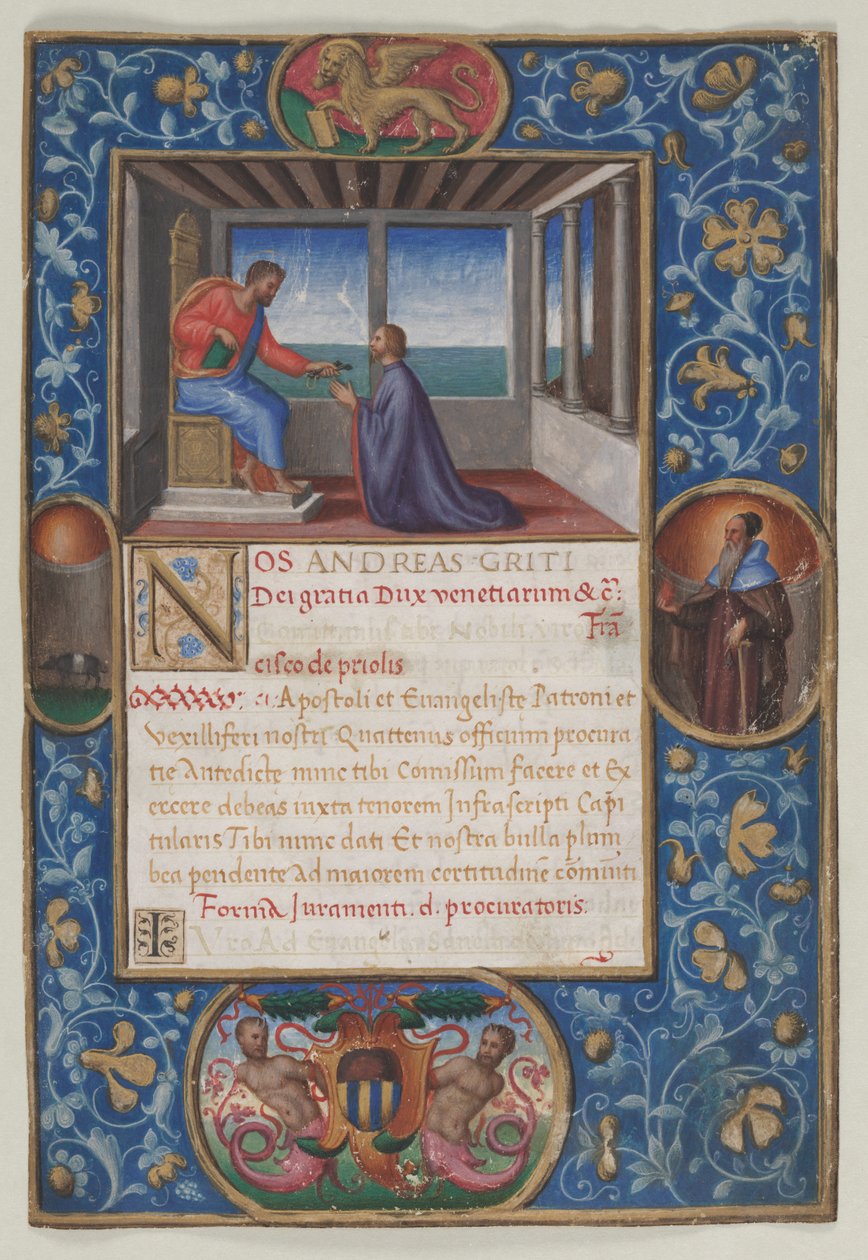 NOS ANDREAS·GRITI
Dei gratia Dux venetiarum & c̃:
Frã
cisco de priolis
Apostoli et Euangelistę Patroni et
vexilliferi nostri Quattenus officium procura
tię Antedictę nunc tibi Comissum facere et Ex
ercere debeas iuxta tenorem Infrascripti Capi
tularis Tibi nunc dati Et nostra bulla plum
bea pendente Ad maiorem certitudinẽ cõmuniti
Forma Iuramenti. d. procuratoris.
I
Vro Ad Euangelia